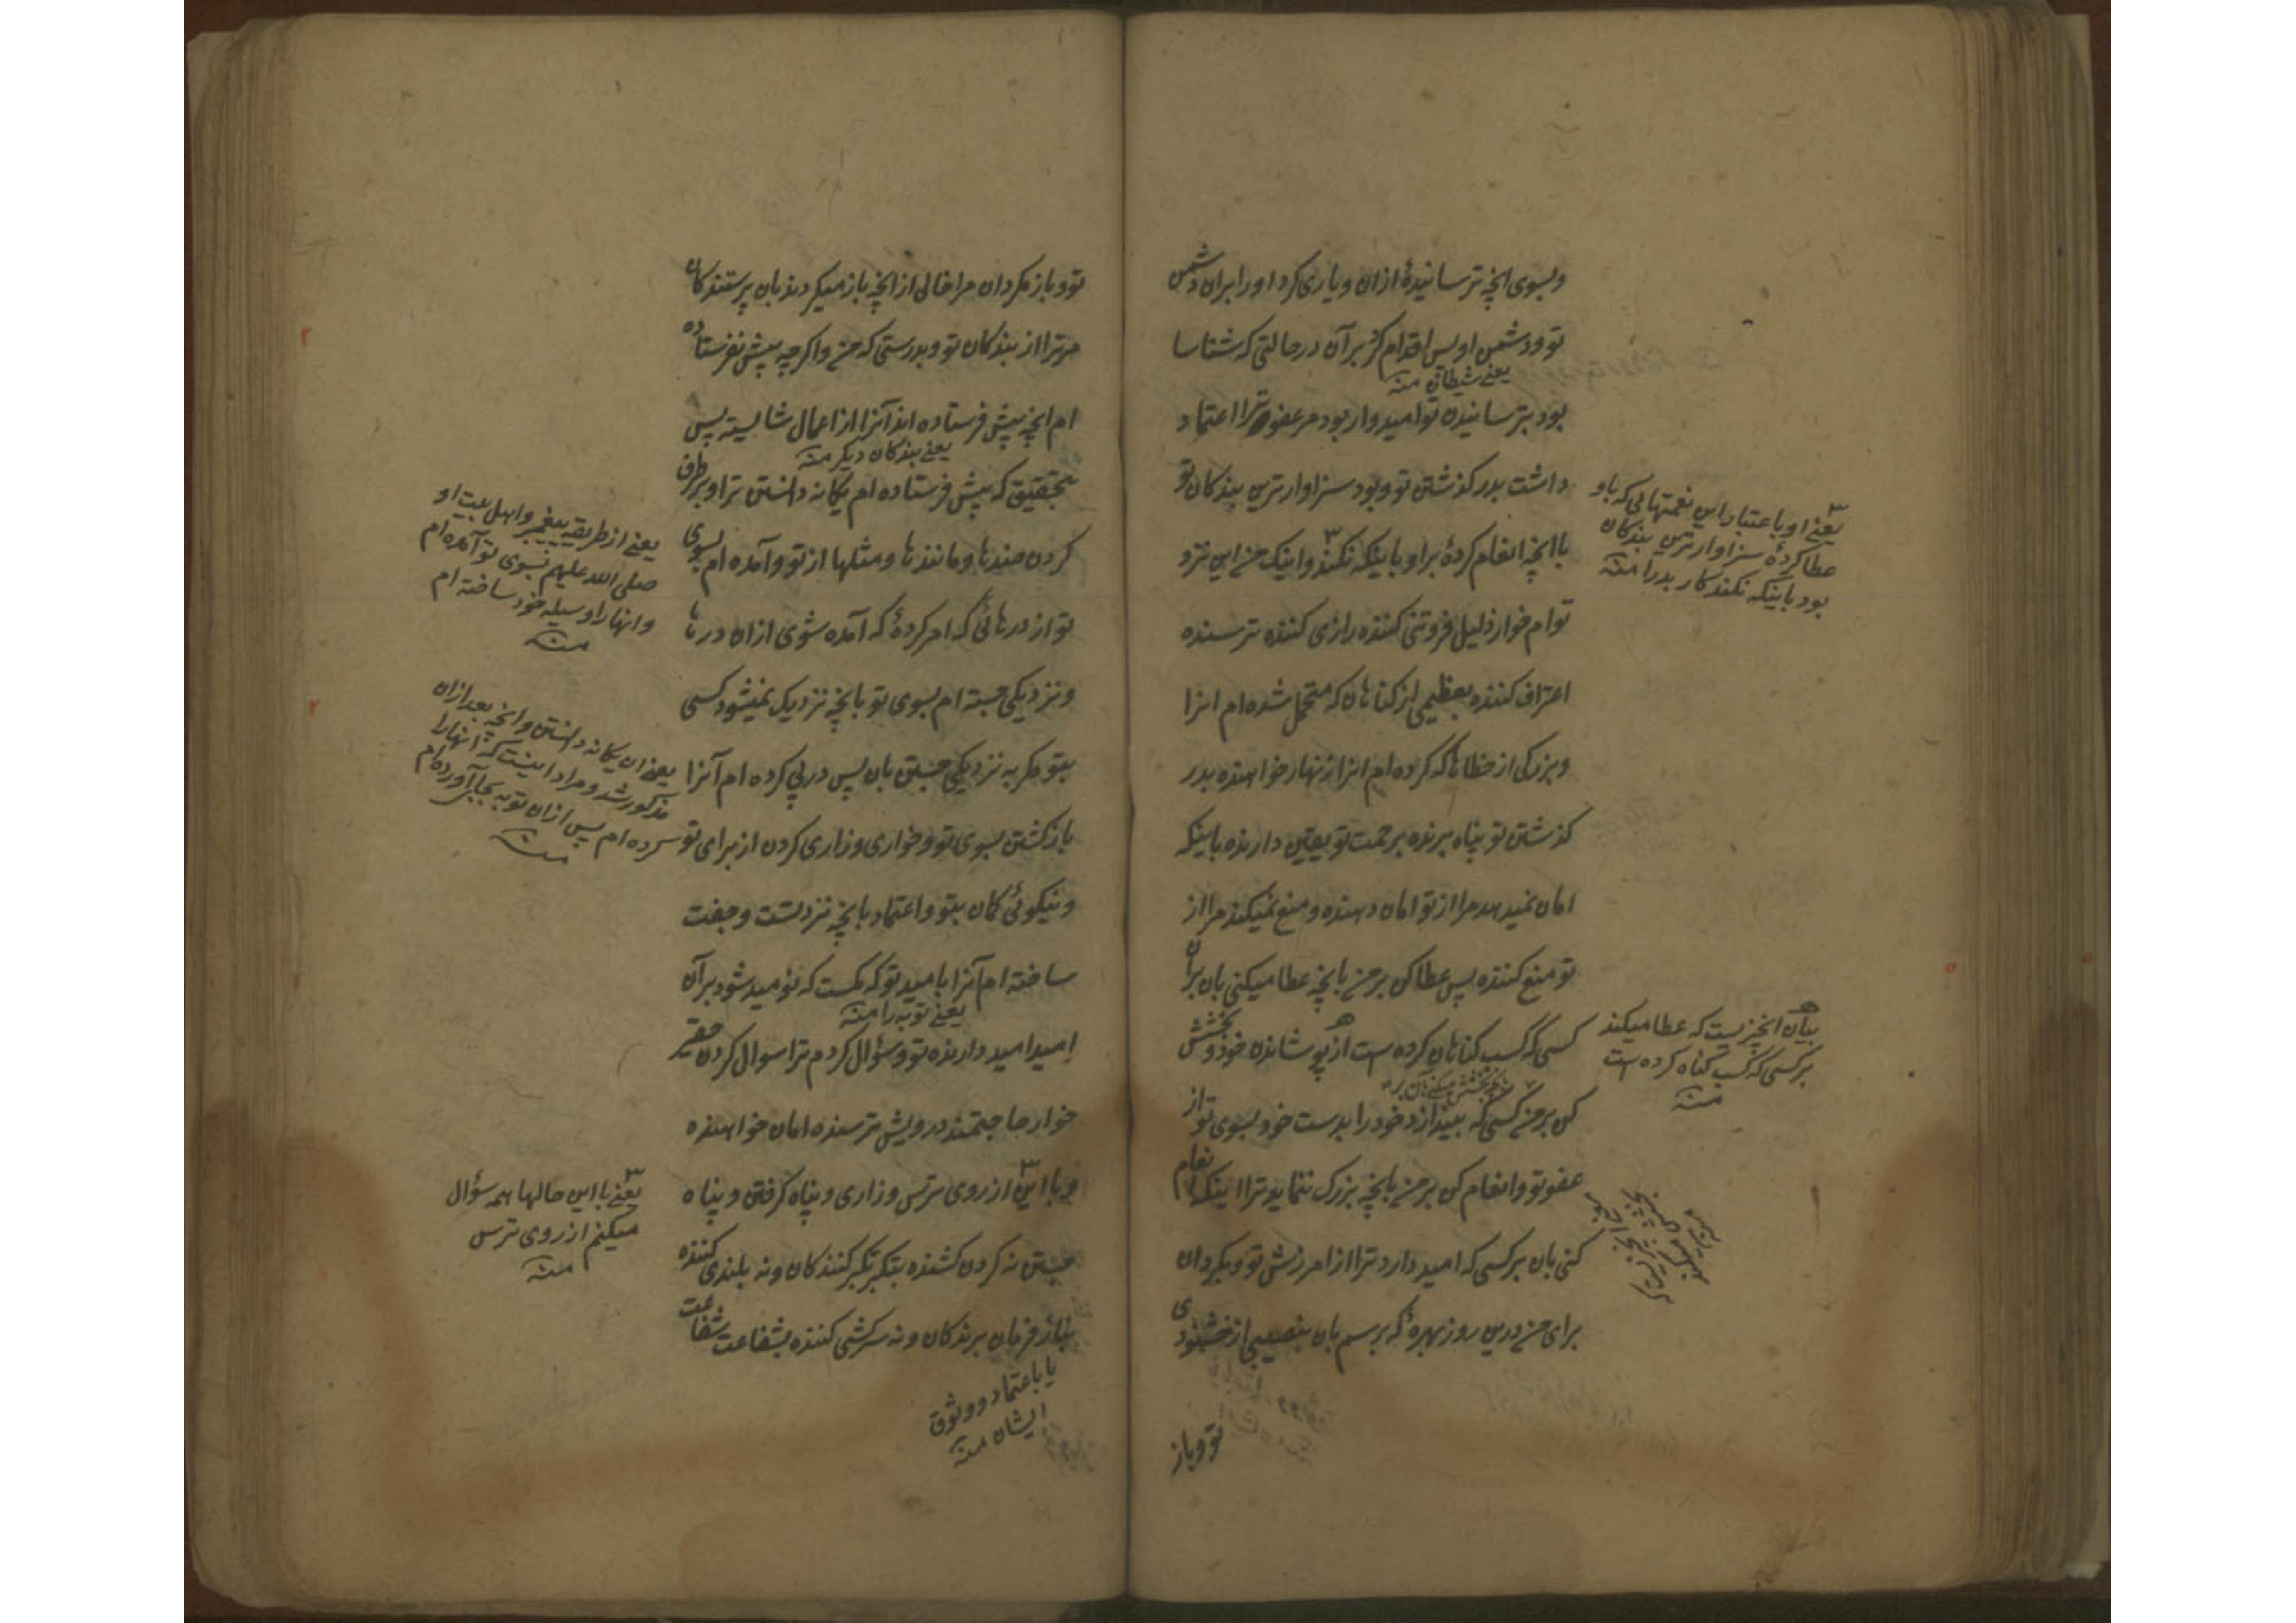 وبسوی انچه ترسانیدهٔ ازان ویاری کرد او را بران دشمن
تو ودشمن او پس اقدام کرد بر آن در حالتی که شناسا
یعنے شیطان منه
بود بترسانیدن تو امیدوار بود مر عفو ترا اعتماد
داشت بدر کذشتن تو وبود سزاوارترین بندکان تو
با انچه انعام کردهٔ براو باینکه نکند واینک من این نزد
توام خوار ذلیل فروتنی کننده زاری کننده ترسنده
اعتراف کننده بعظیمی از کناهان که متحمل شده ام انرا
وبزرکی از خطاها که کرده ام انرا زنهار خواهنده بدر
کذشتن تو پناه برنده برحمت تو یقین دارنده باینکه
امان نمیدهد مرا از تو امان دهنده ومنع نمیکند مرا از
تو منع کننده پس عطا کن بر من بانچه عطا میکنی بان بران
کسی که کسب کناهان کرده است از پوشاندن خود وبخشش
کن بر من کسی که بیندازد خود را بدست خود بسوی تو از
عفو تو وانعام کن بر من بانچه بزرک ننماید ترا اینکه انعام
کنی بان بر کسی که امید دارد ترا از امرزش تو وبکردان
برای من درین روز بهرهٔ که برسم بان بنصیبی از خشنودی
تو وباز
یعنے او باعتبار این نعمتهائی که باو
عطا کردهٔ سزاوارترین بندکان
بود باینکه نکند کار بد را منه
بیان انچیزیست که عطا میکند
بر کسی که کسب کناه کرده است
منه
تو وباز مکردان مرا خالی از انچه باز میکردند بان پرستندکان
مر ترا از بندکان تو وبدرستی که من واکرچه پیش نفرستاده
ام انچه پیش فرستاده اند آنرا از اعمال شایسته پس
یعنے بندکان دیکر منه
بتحقیق که پیش فرستاده ام یکانه دانستن ترا وبرطرف
کردن ضدها ومانندها ومثلها از تو وآمده ام بسوی
تو از درهائی که امر کردهٔ که آمده شوی ازان درها
ونزدیکی جسته ام بسوی تو بانچه نزدیک نمیشود کسی
بتو مکر به نزدیکی جستن بان پس در پی کرده ام آنرا
بازکشتن بسوی تو وخواری وزاری کردن از برای تو
ونیکوئی کمان بتو واعتماد بانچه نزد تست وجفت
ساخته ام آنرا بامید تو که کمست که نومید شود بر آن
یعنے توبه را منه
امید امید دارنده تو وسؤال کردم ترا سوال کردن حقیر
خوار حاجتمند درویش ترسنده امان خواهنده
وبا این از روی ترسی وزاری وپناه کرفتن وپناه
جستن نه کردن کشنده بتکبر تکبر کنندکان ونه بلندی کننده
بناز فرمان برندکان ونه سرکشی کننده بشفاعت شفاعت
یا باعتماد ووثوق
ایشان منه
یعنے از طریقه پیغمبر واهل بیت او
صلی الله علیهم بسوی تو آمده ام
وانها را وسیله خود ساخته ام
منه
یعنے ان یکانه دانستن وانچه بعد ازان
مذکور شد ومراد اینست که انها را
کرده ام پس ازان توبه بجا آورده ام
منه
یعنے با این حالها همه سؤال
میکنم از روی ترس
منه